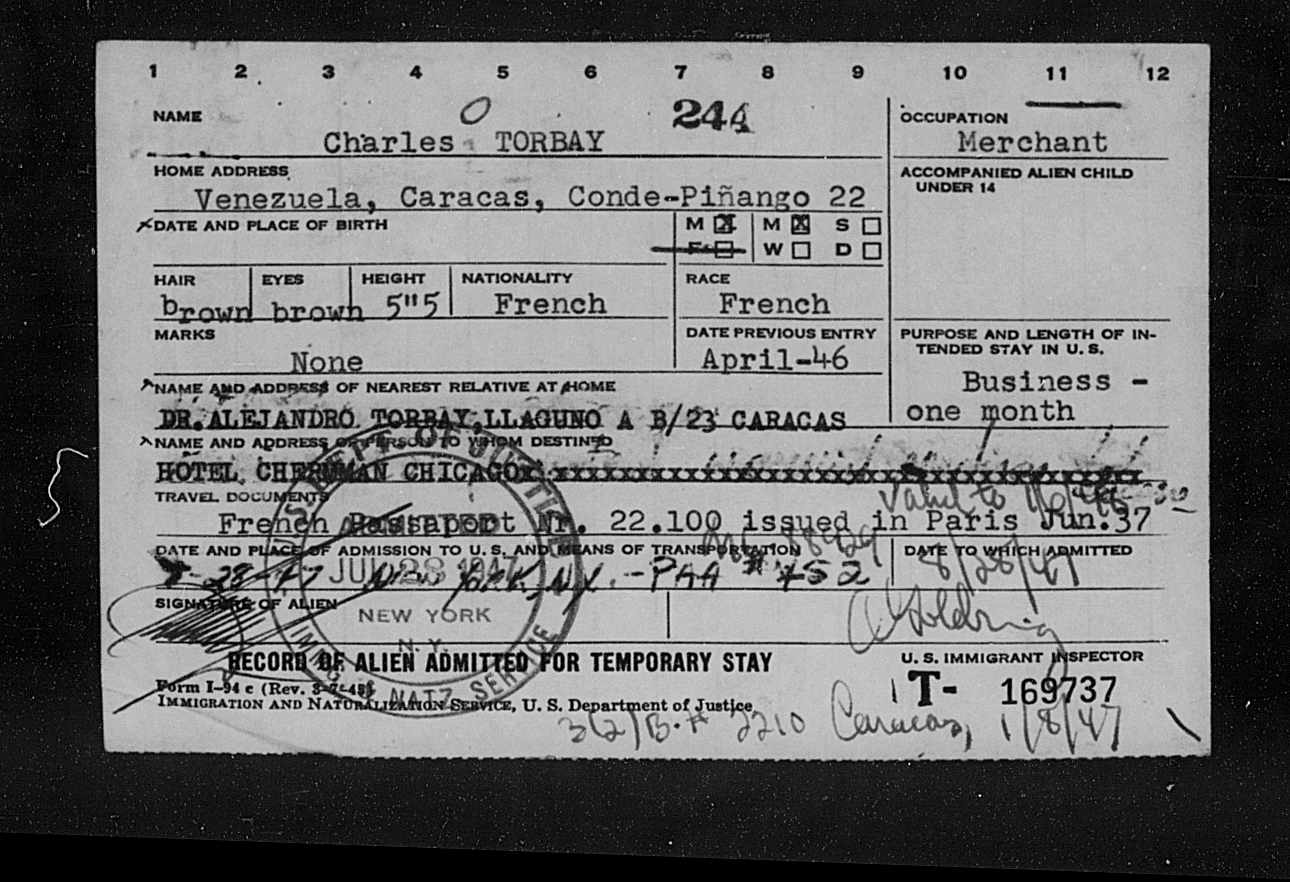 1 2 3 4 5 6 7 8 9 10 11 12
NAME
244
Charles TORBAY
OCCUPATION
Merchant
HOME ADDRESS
Venezuela, Caracas, Conde-Piñango 22
ACCOMPANIED ALIEN CHILD
UNDER 14
DATE AND PLACE OF BIRTH
M X M X S
F W D
HAIR EYES HEIGHT NATIONALITY RACE
brown brown 5"5 French French
MARKS
None
DATE PREVIOUS ENTRY
April-46
PURPOSE AND LENGTH OF IN-
TENDED STAY IN U. S.
Business -
one month
NAME AND ADDRESS OF NEAREST RELATIVE AT HOME
DR. ALEJANDRO TORBAY, LLAGUNO A B/23 CARACAS
NAME AND ADDRESS OF PERSON TO WHOM DESTINED
HOTEL CHERUMAN CHICAGO
Valid to
TRAVEL DOCUMENTS
French Passaport Nr. 22.100 issued in Paris Jun.37
DATE AND PLACE OF ADMISSION TO U. S. AND MEANS OF TRANSPORTATION
7-28-47 New York, N.Y. - PAA # 452
DATE TO WHICH ADMITTED
8/28/47
U.S. DEPT. OF JUSTICE
ADMITTED
JUL 28 1947
NEW YORK
N. Y.
IMMIG. & NATZ. SERVICE
SIGNATURE OF ALIEN
RECORD OF ALIEN ADMITTED FOR TEMPORARY STAY
U. S. IMMIGRANT INSPECTOR
Form I-94 c (Rev. 3-7-45)
IMMIGRATION AND NATURALIZATION SERVICE, U. S. Department of Justice
T- 169737
3(2)B.# 2210 Caracas, 1/8/47